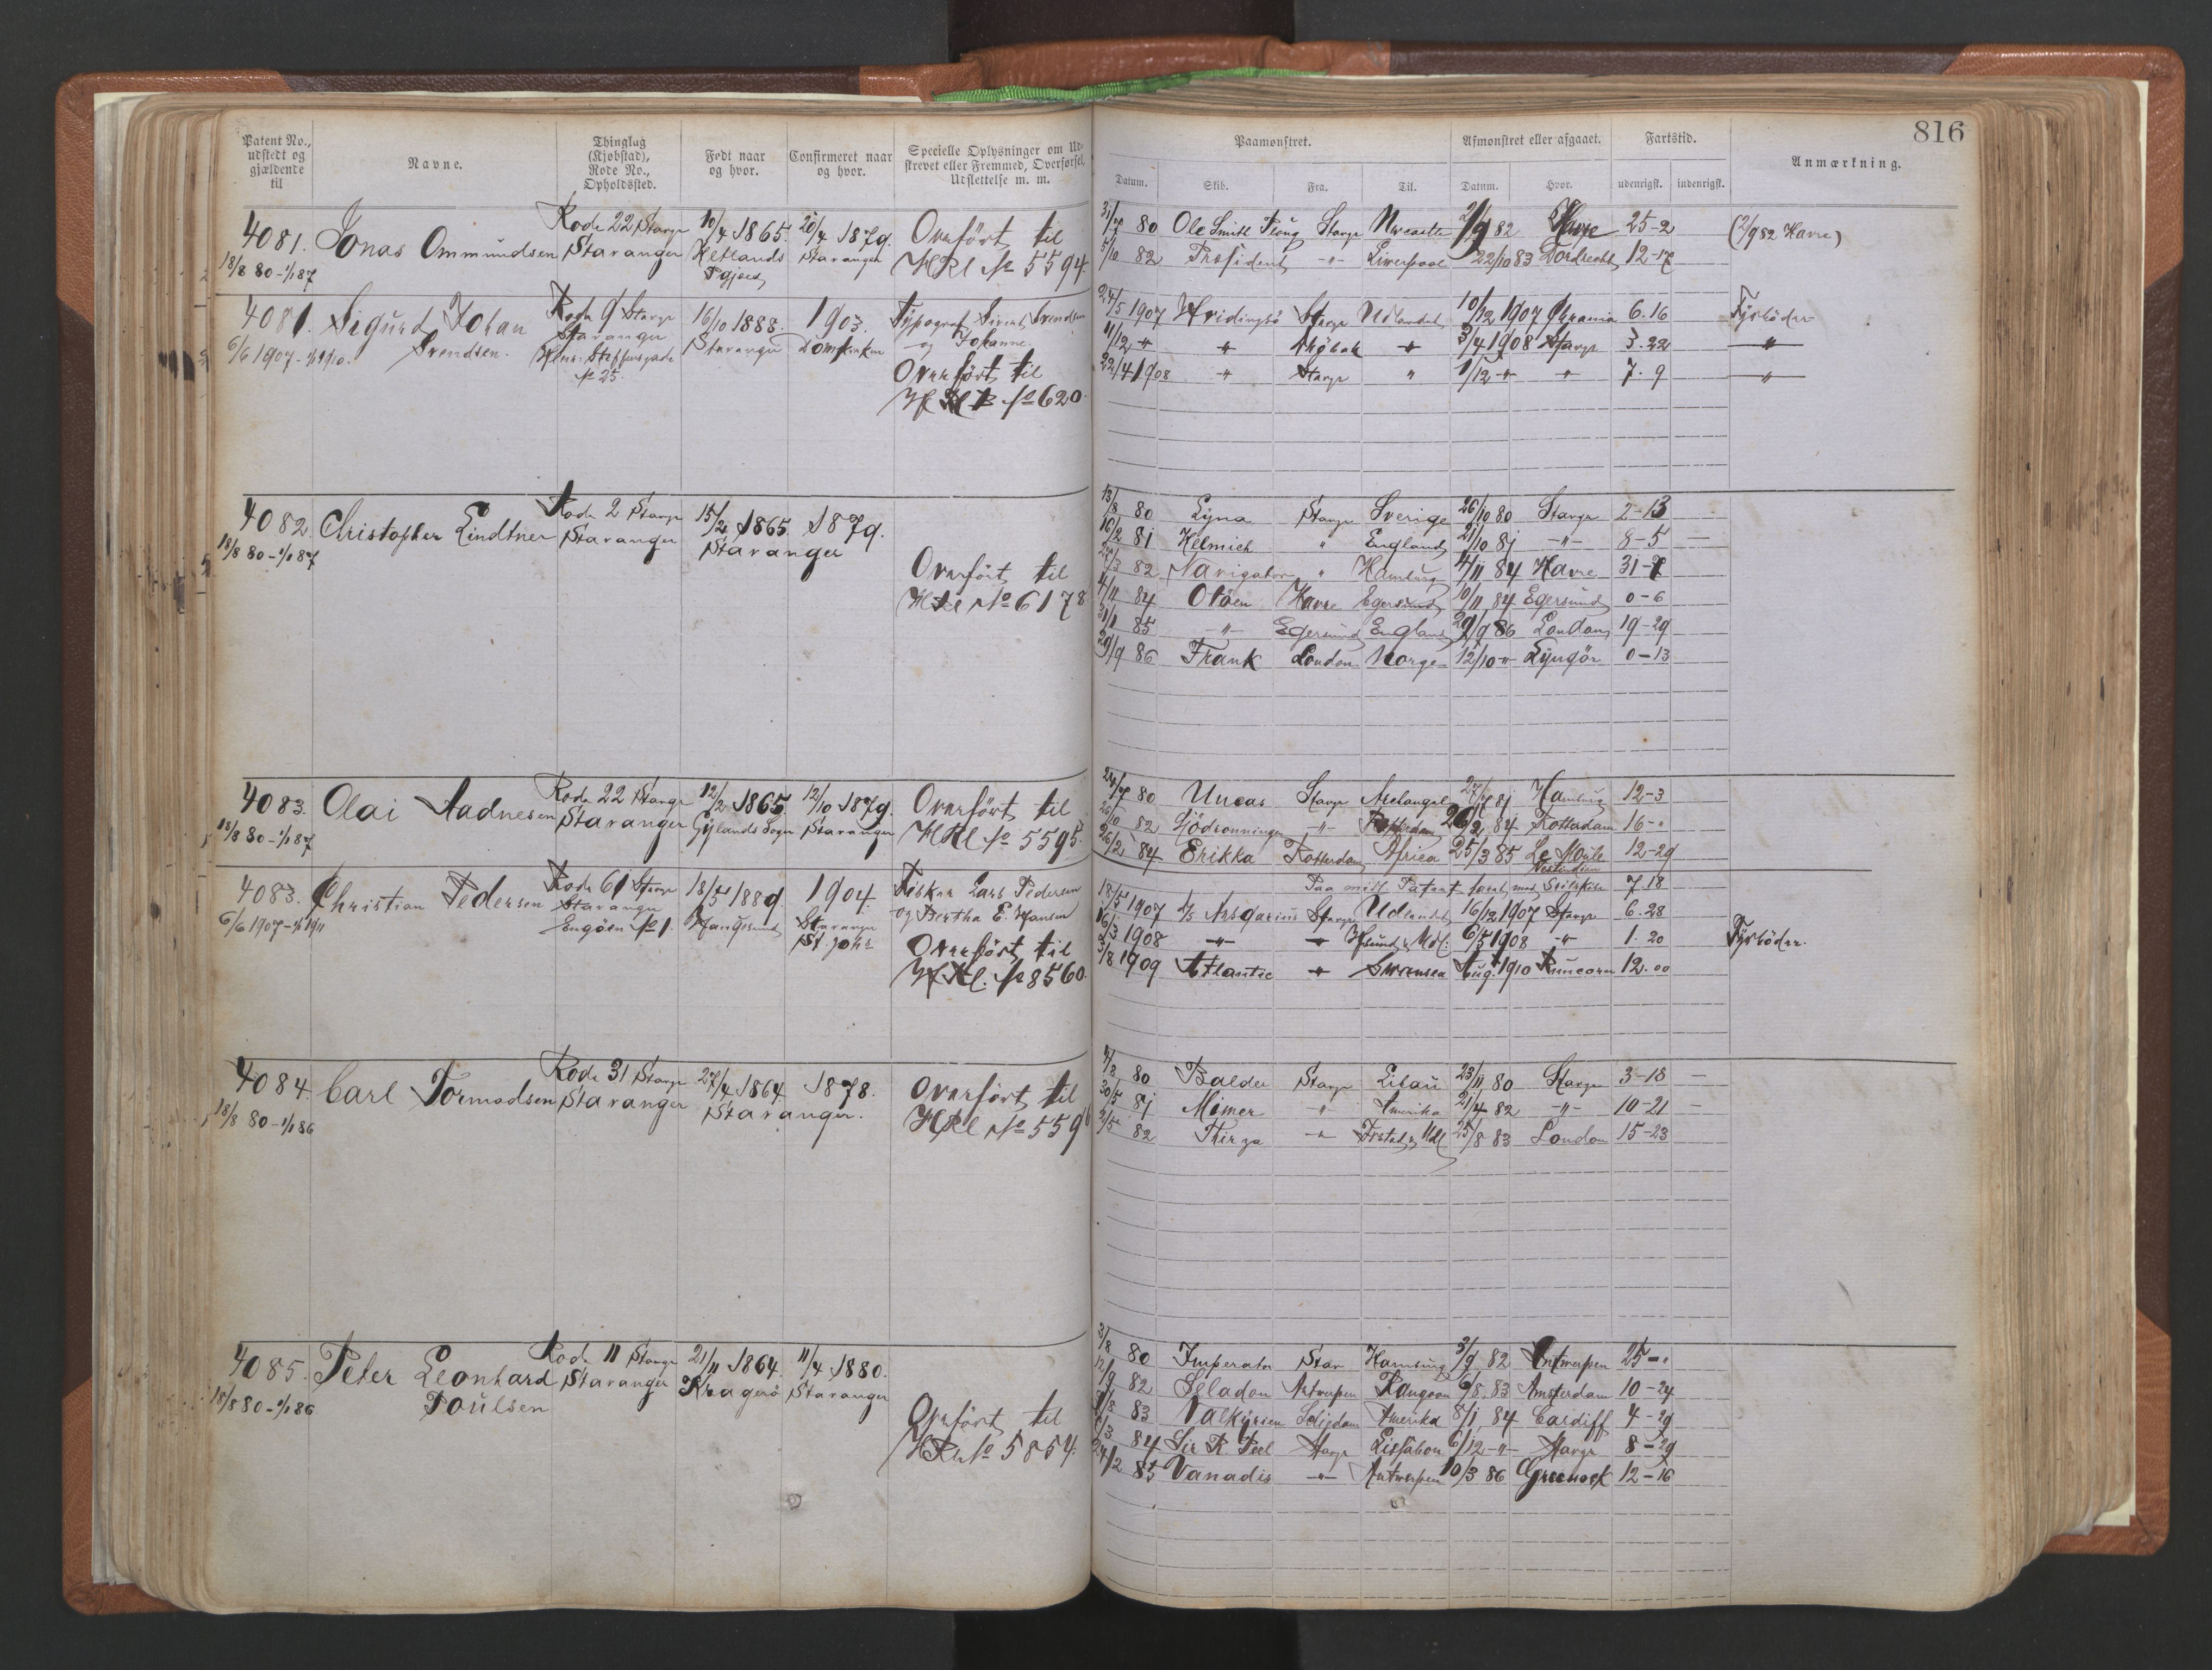 816
Patent No., udstedt og gjældende til
Navne.
Thinglag (Kjøbstad), Rode No., Opholdssted.
Født naar og hvor.
Confirmeret naar og hvor.
Specielle Oplysninger om Udskrevet eller Fremmed, Overførsel, Udslettelse m. m.
Paamønstret.
Afmønstret eller afgaaet.
Fartstid.
Anmærkning.
Datum. Skib. Fra. Til. Datum. Hvor. udenrigsk. indenrigsk.
4081. Jonas Ommundsen Rode 22 Stavgr 10/4 1865. 20/4 1879. Overført til
18/8 80 - 1/1 87 Stavanger Hetlands Pgjæld Stavanger HRl No 5594.
31/7 80 Ole Smith Ploug Stavgr Newcastle 2/9 82 Havre 25-2 (2/9 82 Havre)
5/10 82 President -"- Liverpool 22/10 83 Dordrecht 12-17
4081. Sigurd Johan Rode 9 Stavgr 16/10 1888. 1903. Typograf Sivert Svendsen
6/6 1907 - 1/1 1910. Svendsen. Stavanger Stavanger Domkirken og Johanne.
Steffensgade
No 25.
Overført til
No 620.
24/5 1907 Hvidingsö Stavgr Udlandet 10/12 1907 Chrania 6.16 Fyrböder
11/12 " " " 3/4 1908 Stavgr 3.22 "
22/4 1908 " Stavgr " 1/12 " " 7.9 "
4082. Christopher Lindtner Rode 2 Stavgr 15/2 1865. 1879.
18/8 80 - 1/1 87 Stavanger Stavanger
Overført til
No 6178
13/8 80 Lyna Stavgr Sverige 26/10 80 Stavgr 2-13
16/2 81 Helmich " England 21/10 81 -"- 8-5 -
82 Navigator " Hamburg 4/11 84 Havre 31-7
4/11 84 Otöen Havre Egersund 10/11 84 Egersund 0-6
85 -"- Egersund England 29/9 86 London 19-29
29/9 86 Frank London Norge 12/10 " Lyngör 0-13
4083. Olai Aadnesen Rode 22 Stavgr 12/2 1865. 12/10 1879. Overført til
18/8 80 - 1/1 87 Stavanger Gylands Sogn Stavanger HRl No 5595.
24/7 80 Uncas Stavgr Archangel 27/7 81 Hamburg 12-3
82 Sjödronningen -"- Rotterdam 26/2 84 Rotterdam 16-"
26/2 84 Erikka Rotterdam Africa 25/3 85 Le Moule 12-29
Vestindien
4083. Christian Pedersen Rode 61 Stavgr 18/5 1889. 1904. Fisker Lars Pedersen
6/6 1907 - 1/1 1911 Stavanger Haugesund Stavanger og Bertha E. Hansen
Engöen No 1. St. Johs
Overført til
No 8560.
Paa midl. Patent 7.18
18/5 1907 Ansgarius Stavgr Udlandet 16/12 1907 Stavgr 6.28
16/3 1908 -"- -"- Hsund & Udl: 6/5 1908 -"- 1.20 Fyrböder.
3/8 1909 Atlantic " Swansea Aug. 1910 Runcorn 12.00
4084. Carl Tormodsen Rode 31 Stavgr 27/4 1864. 1878. Overført til
18/8 80 - 1/1 86 Stavanger Stavanger. HRl No 5596
80 Balder Stavgr Libau 23/11 80 Stavgr 3-18 -
30/5 81 Mimer " Amerika 21/4 82 -"- 10-21 -
82 Thirza " Udl 25/8 83 London 15-23
4085. Peter Leonhard Rode 11 Stavgr 21/11 1864. 11/4 1880.
18/8 80 - 1/1 86 Poulsen Stavanger Kragerö Stavanger
Overført til
No 5854.
3/8 80 Imperator Stav Hamburg 3/9 82 Antwerpen 25-"
12/9 82 Seladon Antwerpen Rangoon 6/8 83 Amsterdam 10-24
83 Valkyrien Schiedam Amerika 5/1 84 Cardiff 4-29
84 Sir R Peel Stavgr Lissabon 6/12 -"- Stavgr 8-29
24/2 85 Vanadis -"- Antwerpen 10/3 86 Greenock 12-16